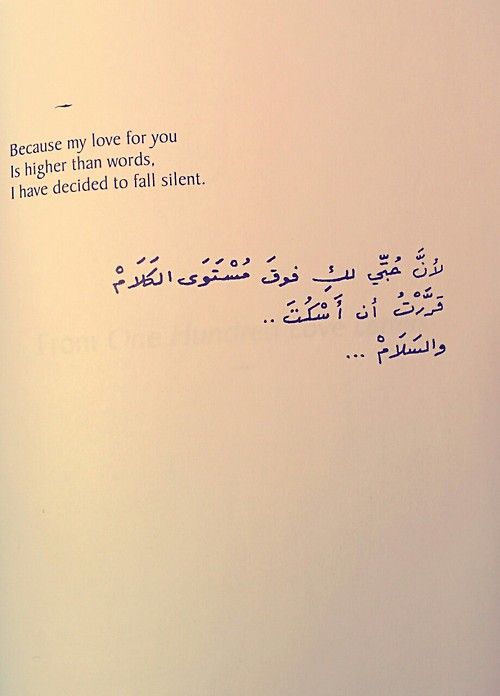 Because my love for you
Is higher than words,
I have decided to fall silent.
لأنَّ حُبِّي لكِ فوقَ مُسْتَوَى الكَلَامْ
قررَّتُ أن أَسْكُتَ ..
والسَلَامْ ...